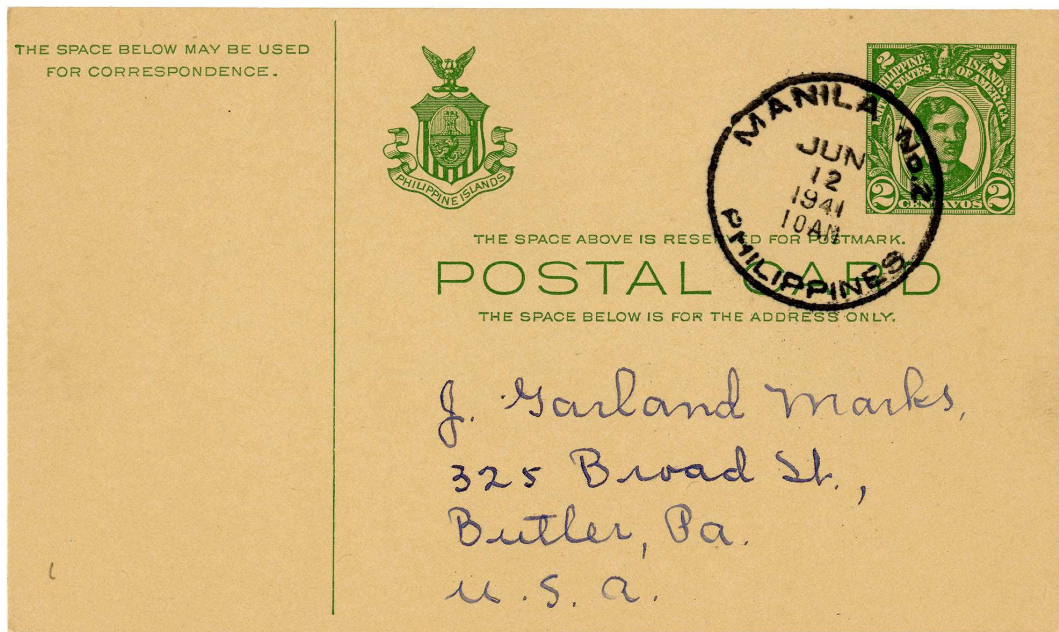 THE SPACE BELOW MAY BE USED
FOR CORRESPONDENCE.
PHILIPPINE ISLANDS
2 2
PHILIPPINE ISLANDS
STATES OF AMERICA
2 CENTAVOS 2
MANILA No.2
JUN
12
1941
10AM
PHILIPPINES
THE SPACE ABOVE IS RESERVED FOR POSTMARK.
POSTAL CARD
THE SPACE BELOW IS FOR THE ADDRESS ONLY.
J. Garland Marks,
325 Broad St.,
Butler, Pa.
U.S.A.